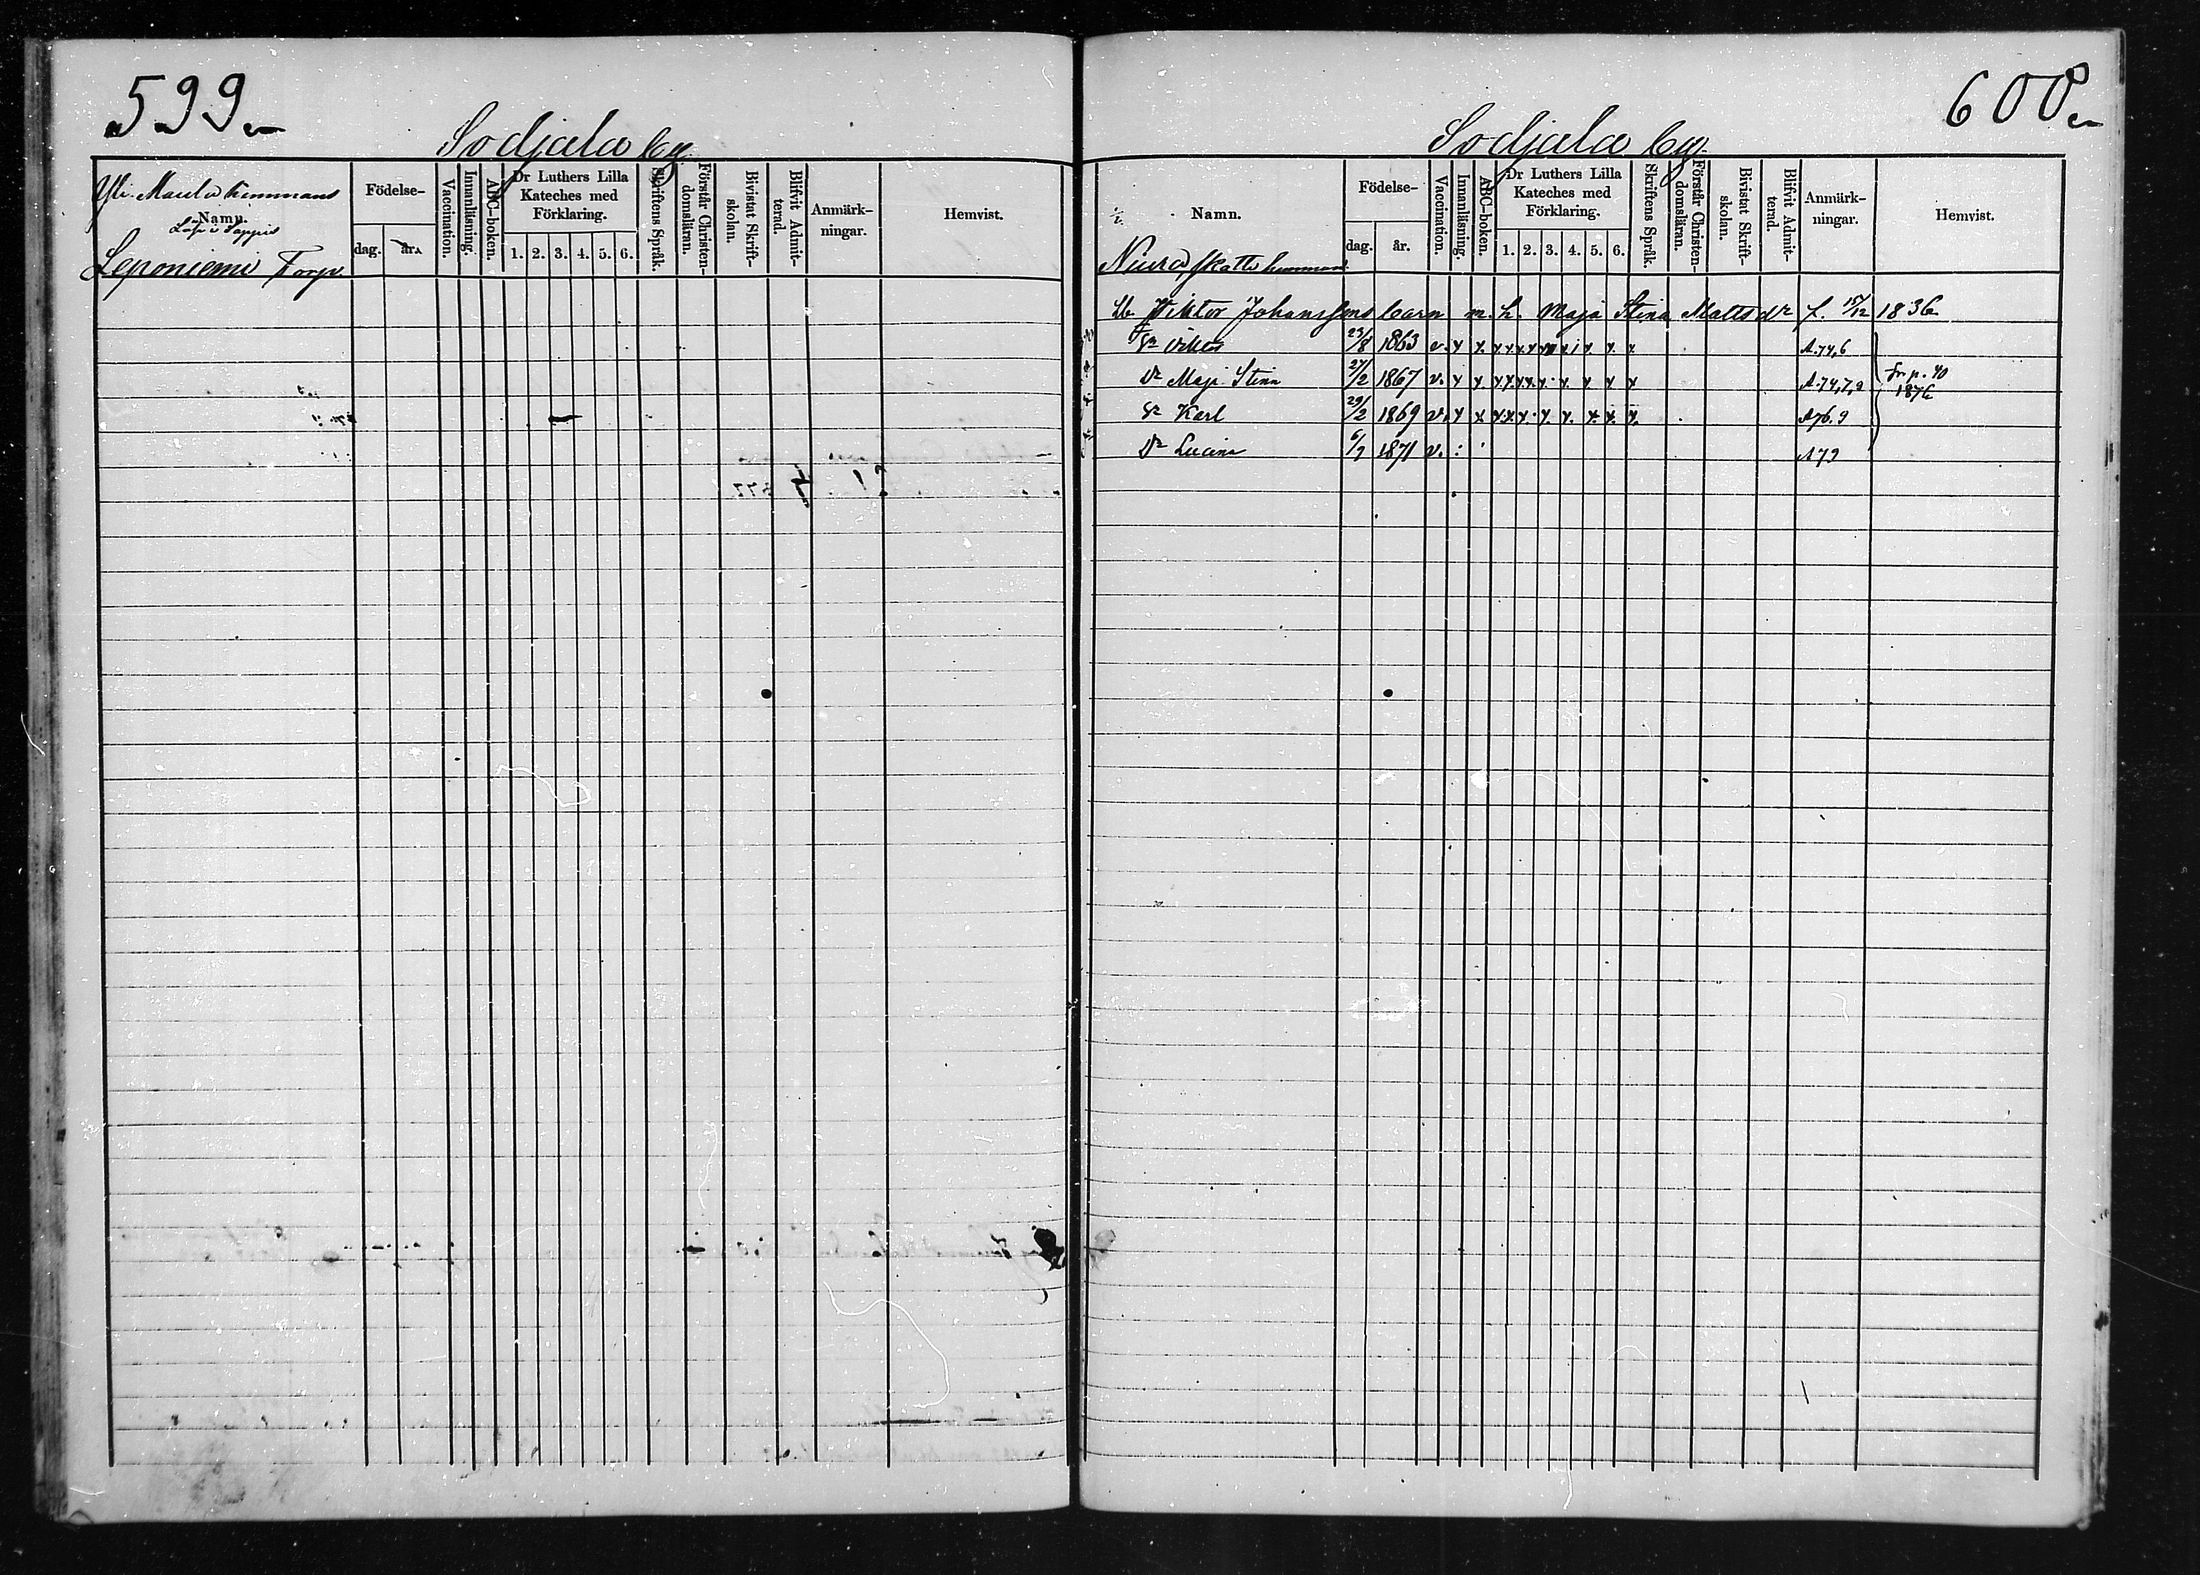 599
Sodjala by
Yli Maula hemmans
Namn.
Födelse-
dag. år.
Vaccination.
Innanläsning.
ABC-boken.
Dr Luthers Lilla
Kateches med
Förklaring.
1. 2. 3. 4. 5. 6.
Skriftens Språk.
Förstår Christen-
domsläran.
Bivistat Skrift-
skolan.
Blifvit Admit-
terad.
Anmärk-
ningar.
Hemvist.
Leponiemi Torp
600
Sodjala by
Namn.
Födelse-
dag. år.
Vaccination.
Innanläsning.
ABC-boken.
Dr Luthers Lilla
Kateches med
Förklaring.
1. 2. 3. 4. 5. 6.
Skriftens Språk.
Förstår Christen-
domsläran.
Bivistat Skrift-
skolan.
Blifvit Admit-
terad.
Anmärk-
ningar.
Hemvist.
skatte hemman
Viktor Johanssons barn m. h. Maja Stina Mattsdr f. 15/12 1836
23/8 1863 v. x x x x x x x x x A.74,6
Dr Maja Stina 27/2 1867 v. x x x x x x x x x x A.74,7,9 fr. p. 40
1876
Sn Karl 29/2 1869 v. x x x x x x x x x x A76.9
Dr Lucina 6/7 1871 v. A79